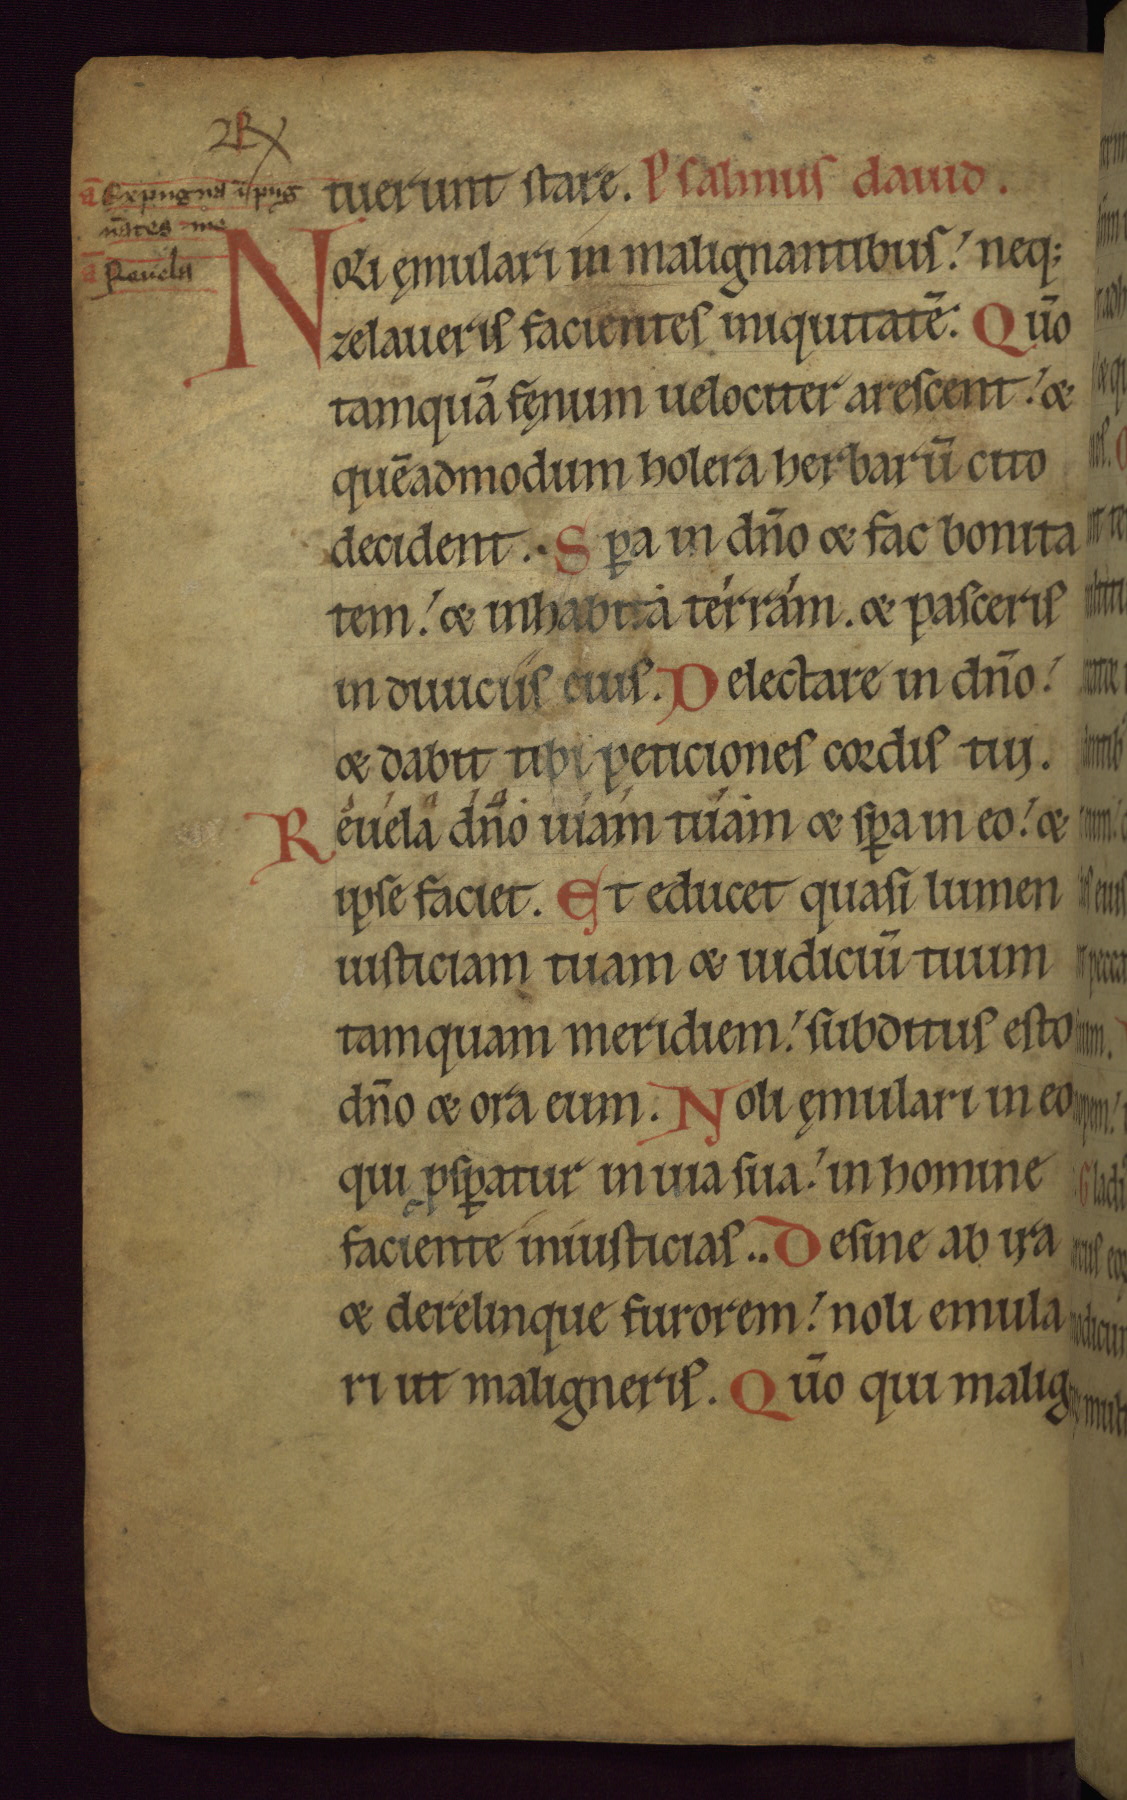 a Expugna īpug
nātes me
a Reuela
tuerunt stare. Psalmus dauid.
NOli ęmulari in malignantibus! neq;
zelaueris facientes iniquitatē. Quō
tamquā fęnum uelociter arescent! &
quēadmodum holera herbarū cito
decident. Spa in dn̄o & fac bonita
tem! & inhabita terram. & pasceris
in diuiciis eius. Delectare in dn̄o!
& dabit tibi peticiones cordis tui.
Reuela dn̄o uiam tuam & spa in eo! &
ipse faciet. Et educet quasi lumen
iusticiam tuam & iudiciū tuum
tamquam meridiem! subditus esto
dn̄o & ora eum. Noli ęmulari in eo
qui psꝑatur in uia sua! in homine
faciente iniusticias.. Desine ab ira
& derelinque furorem! noli emula
ri ut maligneris. Quō qui malig